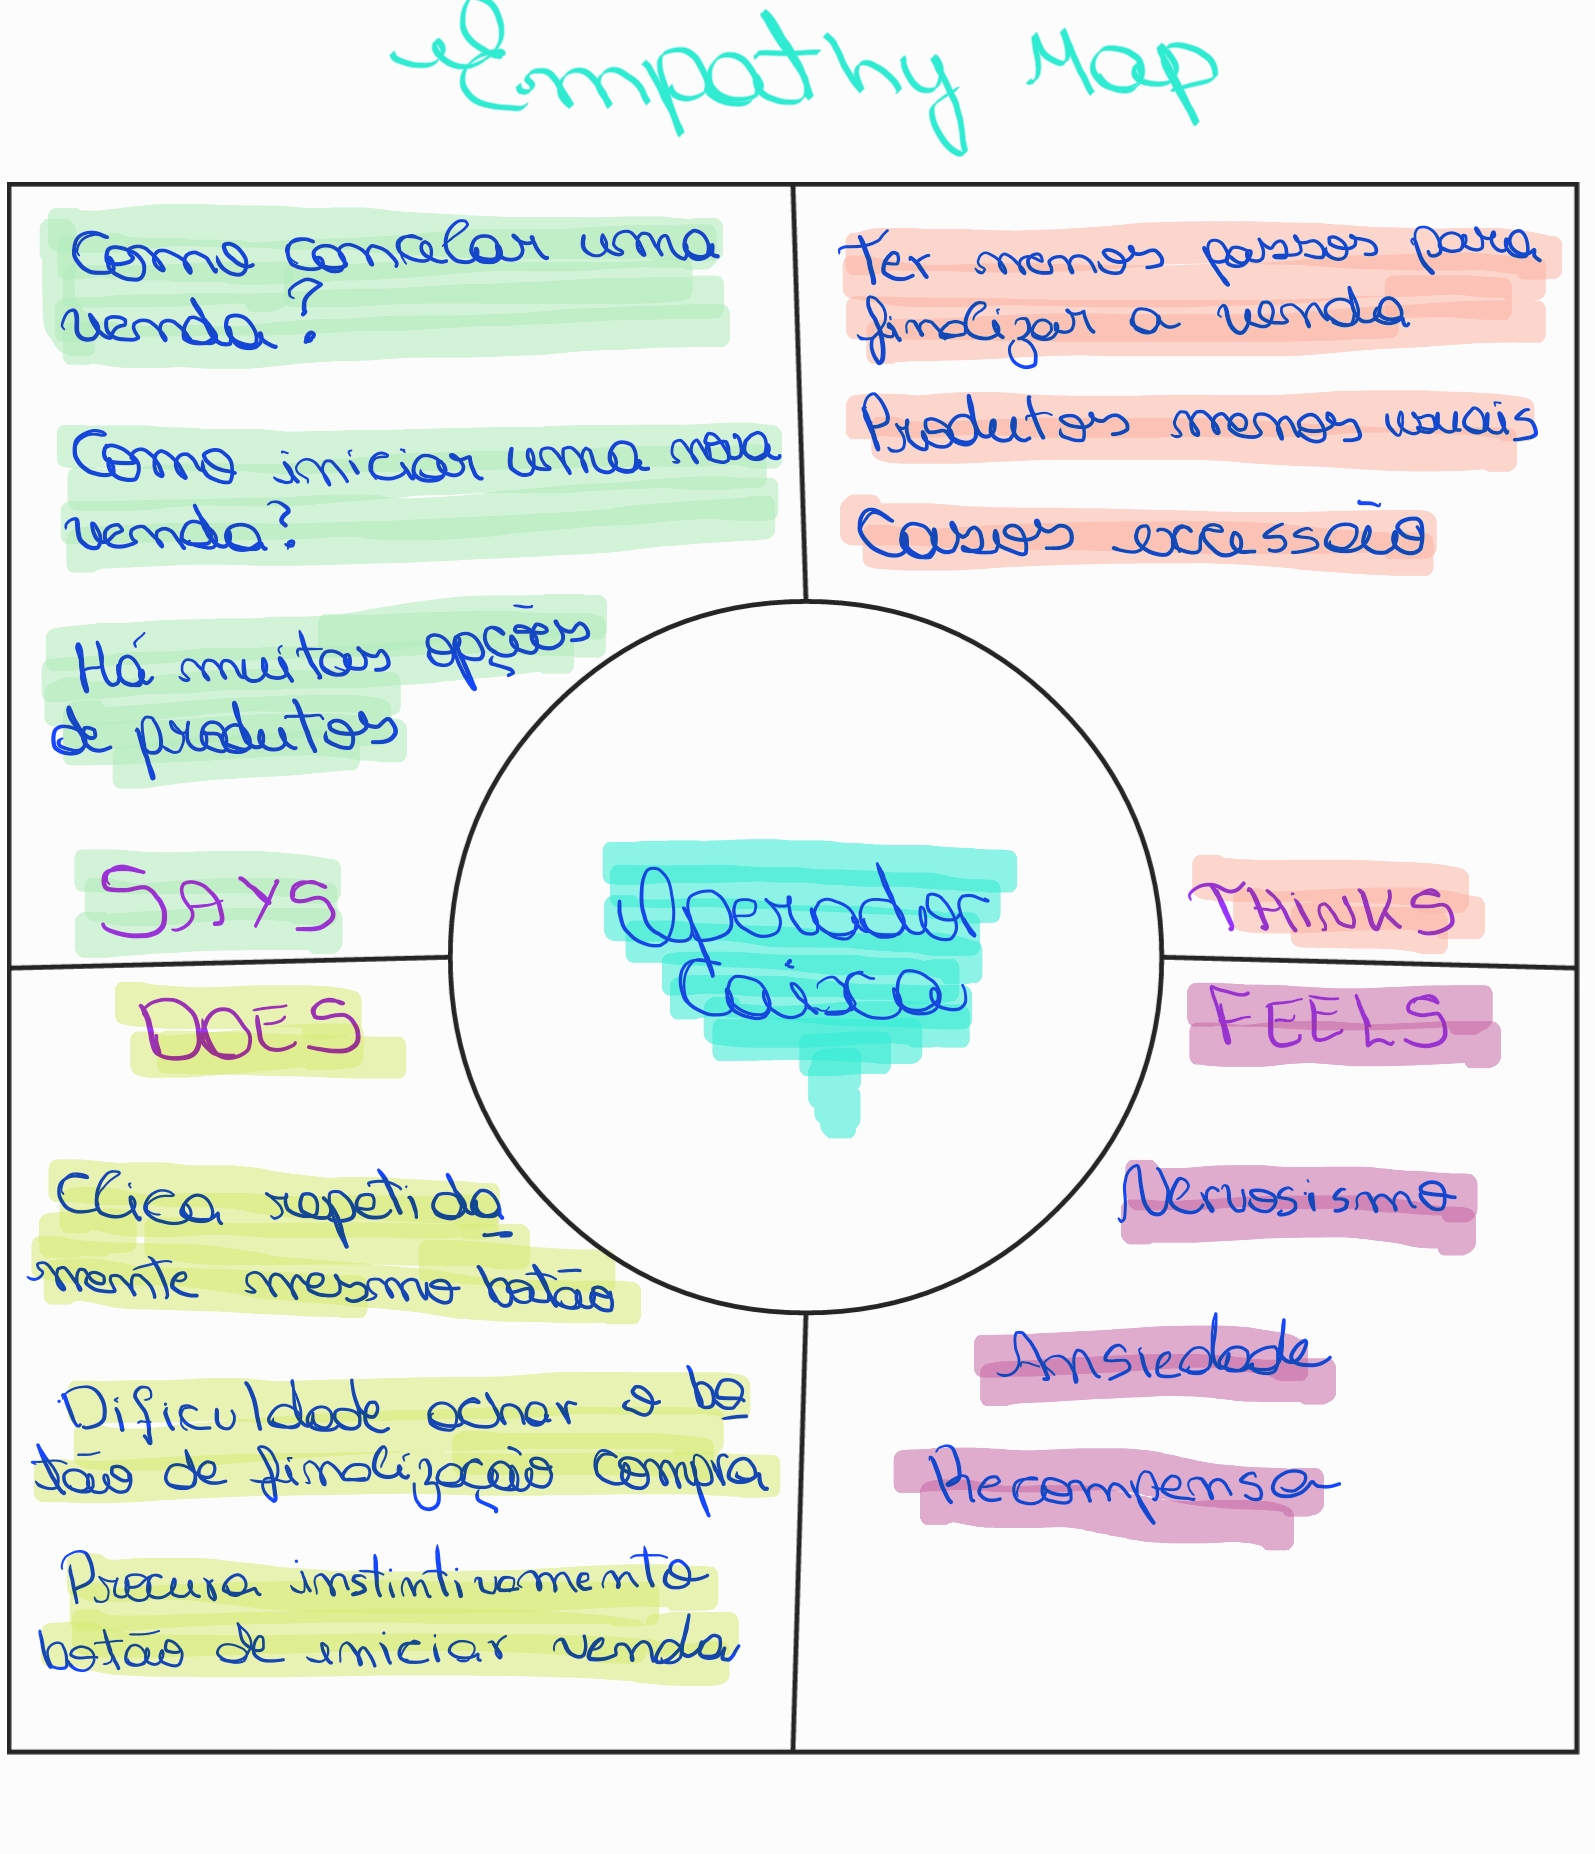 Empathy Map
Como cancelar uma
venda?
Como iniciar uma nova
venda?
Há muitas opções
de produtos
SAYS
Ter menos passos para
finalizar a venda
Produtos menos usuais
Casos excessão
THINKS
Operador
Caixa
DOES
Clica repetida
mente mesmo botão
Dificuldade achar o bo
tão de finalização compra
Procura instintivamento
botão de iniciar venda
FEELS
Nervosismo
Ansiedade
Recompensa